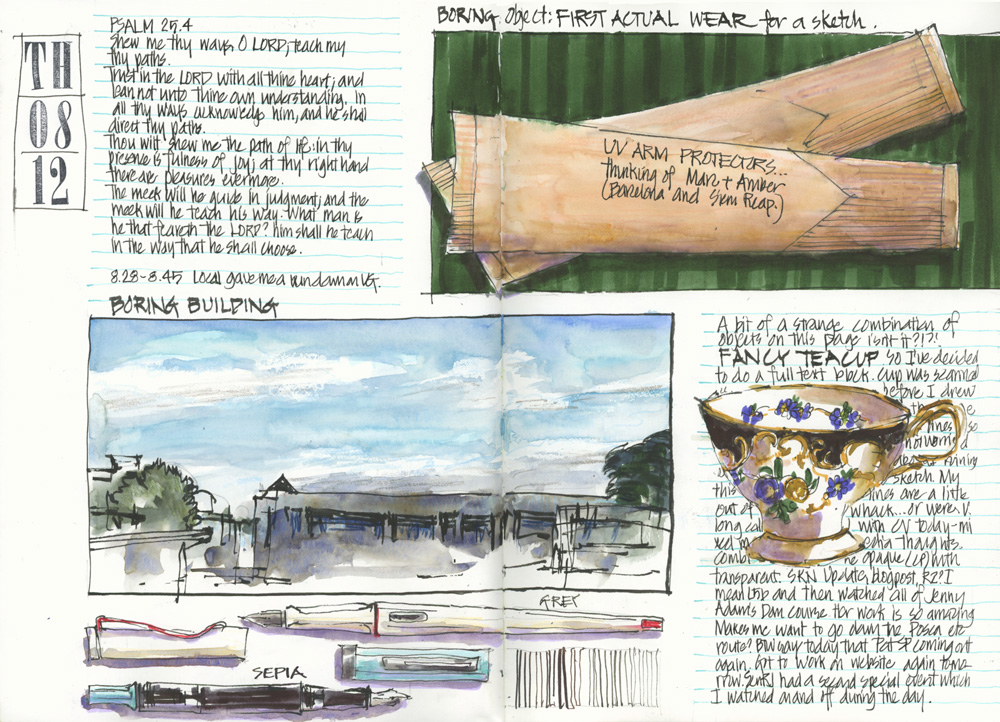 TH
08
12
PSALM 25.4
Shew me thy ways, O LORD; teach my
thy paths.
Trust in the LORD with all thine heart; and
lean not unto thine own understanding. In
all thy ways acknowledge him, and he shall
direct thy paths.
Thou wilt shew me the path of life: in thy
presence is fulness of joy; at thy right hand
there are pleasures evermore.
The meek will he guide in judgment; and the
meek will he teach his way. What man is
he that feareth the LORD? him shall he teach
in the way that he shall choose.
8.28-8.45 Local gave me a run down on VG.
BORING BUILDING
BORING Object: FIRST ACTUAL WEAR for a sketch.
UV ARM PROTECTORS...
thinking of Marc + Amber
(Barcelona and Siem Reap.)
GREY
SEPIA
A bit of a strange combination of
objects on this page isn't it?!?!
FANCY TEACUP. So I've decided
to do a full text block. Cup was scanned
before I drew
the
lines so
not worried
ruining
this sketch. My
lines are a little
out of whack...or were. V.
long call with CV today-mi
thoughts.
opaque (cp) with
transparent. SKN Update, blogpost, R2? I
mean L5b and then watched all of Jenny
Adams Dam course for work is so amazing
Makes me want to go down the Posca etc
route? BW way today that Pat SP coming out
again. Got to work on website again tomo-
rrow. SenRJ had a second special event which
I watched on and off during the day.